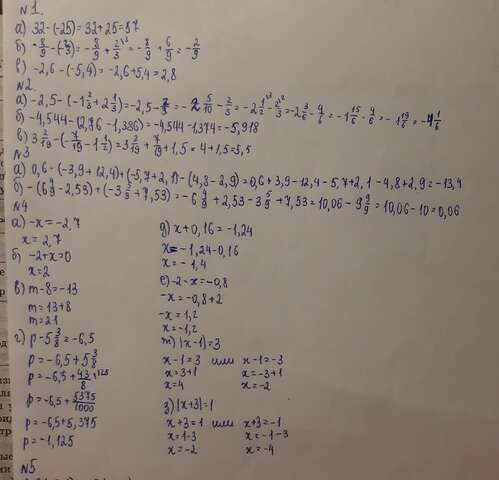 №1.
а) 32-(-25)=32+25=57
б) -8/9-(-2/3)=-8/9+2/3=-8/9+6/9=-2/9
в) -2,6-(-5,4)=-2,6+5,4=2,8
№2.
а) -2,5-(-1 2/3+2 1/3)=-2,5-2/3=-2 5/10-2/3=-2 1/2-2/3=-2 3/6-4/6=-1 15/6-4/6=-1 19/6=-4 1/6
б) -4,544-(2,76-1,386)=-4,544-1,374=-5,918
в) 3 2/19-(-7/19-1 1/2)=3 2/19+7/19+1,5=4+1,5=5,5
№3
а) 0,6-(-3,9+12,4)+(-5,7+2,1)-(4,8-2,9)=0,6+3,9-12,4-5,7+2,1-4,8+2,9=-13,4
б) -(6 4/9-2,53)+(-3 5/9+7,53)=-6 4/9+2,53-3 5/9+7,53=10,06-9 9/9=10,06-10=0,06
№4
а) -x=-2,7
x=2,7
б) -2+x=0
x=2
в) m-8=-13
m=13+8
m=21
г) p-5 3/8=-6,5
p=-6,5+5 3/8
p=-6,5+43/8
p=-6,5+5375/1000
p=-6,5+5,375
p=-1,125
д) x+0,16=-1,24
x=-1,24-0,16
x=-1,4
е) -2-x=-0,8
-x=-0,8+2
-x=1,2
x=-1,2
ж) |x-1|=3
x-1=3 или x-1=-3
x=3+1 x=-3+1
x=4 x=-2
з) |x+3|=1
x+3=1 или x+3=-1
x=1-3 x=-1-3
x=-2 x=-4
№5